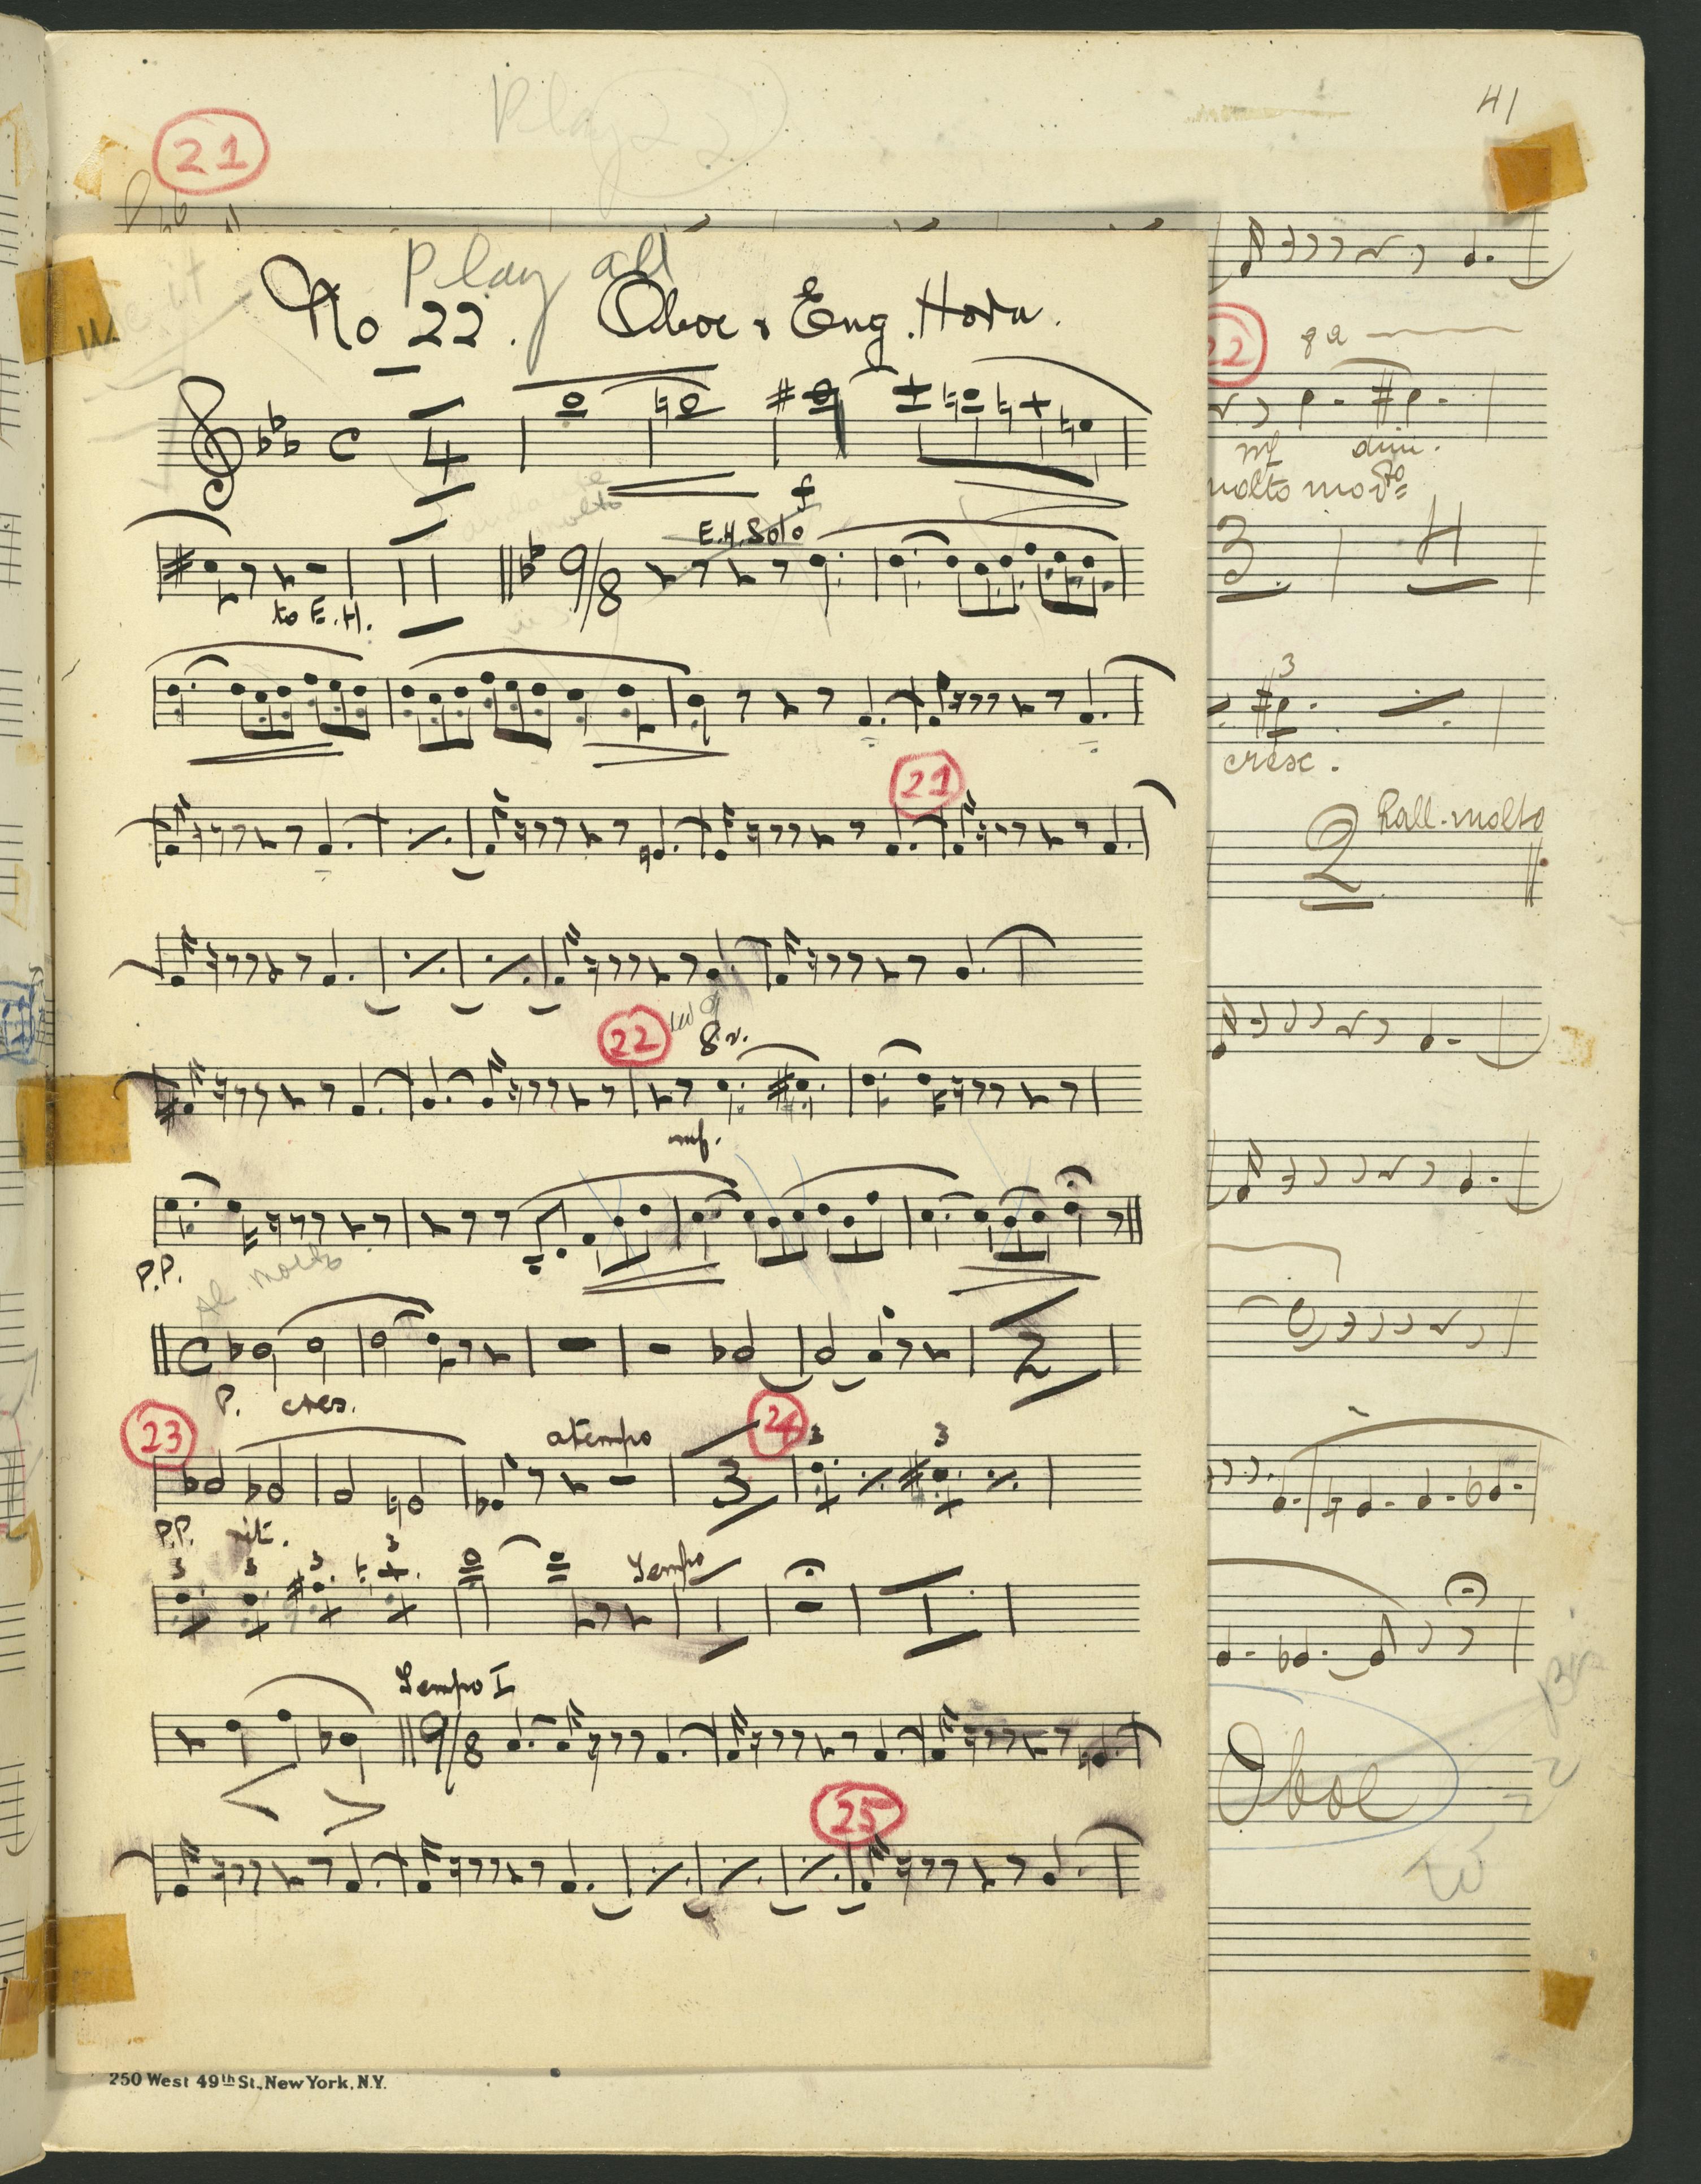 41
Play 22
21
Play all
No 22. Oboe & Eng. Horn.
22
8a
C
4
mf
dim.
f
molto modto
E.H. Solo
9/8
to E.H.
3
4
3
cresc.
21
2
Rall. molto
22
8v.
mf.
P.P.
Al molto
C
2
P.
cres.
23
atempo
24
3
3
3
P.P.
rit.
3
3
3
3
Tempo
1
1
Tempo I
9/8
Oboe
25
250 West 49th St., New York, N.Y.